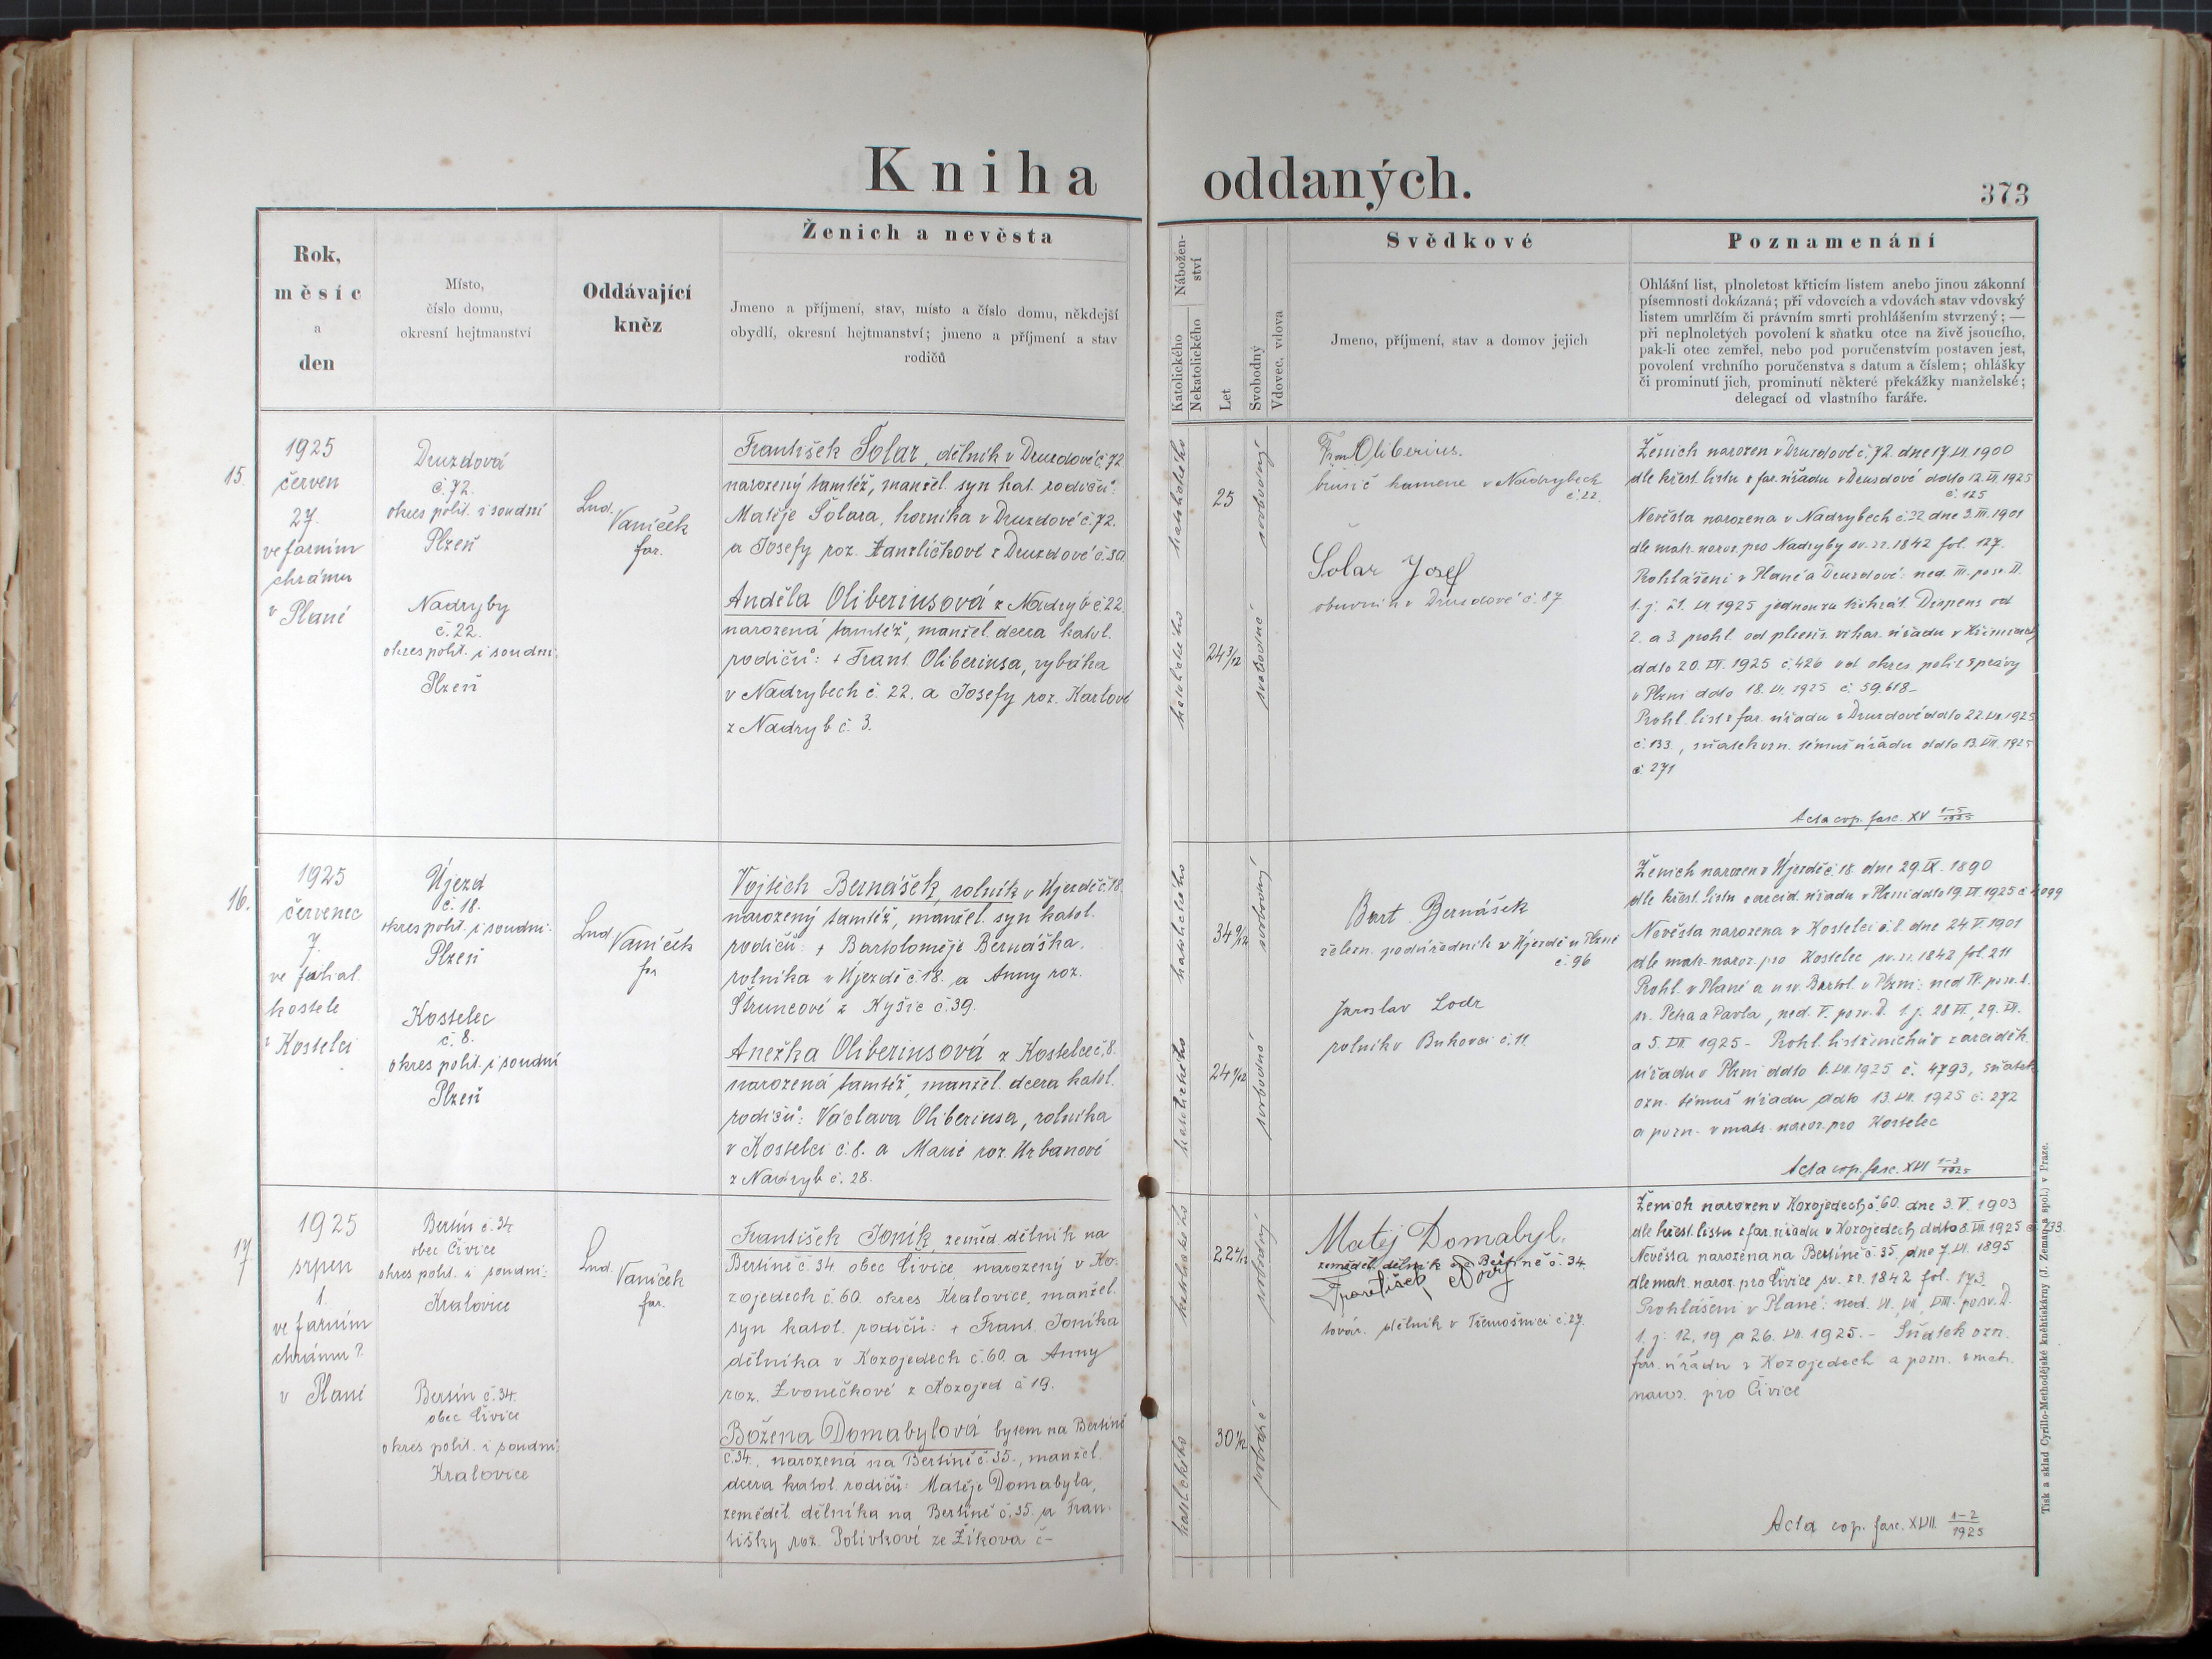 Kniha oddaných.
373
Rok,
měsíc
a
den
Místo,
číslo domu,
okresní hejtmanství
Oddávající
kněz
Ženich a nevěsta
Jmeno a příjmení, stav, místo a číslo domu, někdejší
obydlí, okresní hejtmanství; jmeno a příjmení a stav
rodičů
Nábožen-
ství
Katolického
Nekatolického
Let
Svobodný
Vdovec, vdova
Svědkové
Jmeno, příjmení, stav a domov jejich
Poznamenání
Ohlášní list, plnoletost křticím listem anebo jinou zákonní
písemností dokázaná; při vdovcích a vdovách stav vdovský
listem umrlčím či právním smrti prohlášením stvrzený; —
při neplnoletých povolení k sňatku otce na živě jsoucího,
pak-li otec zemřel, nebo pod poručenstvím postaven jest,
povolení vrchního poručenstva s datum a číslem; ohlášky
či prominutí jich, prominutí některé překážky manželské;
delegací od vlastního faráře.
15.
1925
červen
27.
ve farním
chrámu
v Plané
Druzdová
č. 72.
okres polit. i soudní
Plzeň
Nadryby
č. 22.
okres polit. i soudní
Plzeň
Lud.
Vaníček
far.
František Šolar, dělník v Druzdové č. 72
narozený tamtéž, manžel. syn kat. rodičů:
Matěje Šolara, horníka v Druzdové č. 72.
a Josefy roz. z Druzdové č. 39
Anděla Oliberiusová z Nadryb č. 22.
narozená tamtéž, manžel. dcera katol.
rodičů: + Frant. Oliberiusa, rybáka
v Nadrybech č. 22. a Josefy roz. Karlové
z Nadryb č. 3.
katolického
25
svobodný
katolického
24 3/12
svobodná
Fran Oliberius.
brusič kamene v Nadrybech
č. 22.
Šolar Josef
obuvník v Druzdové č. 87
Ženich narozen v Druzdové č. 72. dne 17. VI. 1900
dle křest. listu z far. úřadu v Druzdové ddto 12. VI. 1925
č. 125
Nevěsta narozena v Nadrybech č. 22 dne 3. III. 1901
dle matr. naroz. pro Nadryby sv. zr. 1842 fol. 127.
Prohlášeni v Plané a Druzdové: ned. III. po sv. D.
t. j. 21. VI 1925 jednou za třikrát. Dispens od
2. a 3. prohl. od plzeň. vikar. úřadu v
ddto 20. VI. 1925 č. 426 a od okres. polit správy
v Plzni ddto 18. VI. 1925 č. 59.618-
Prohl. list z far. úřadu v Druzdové ddto 22. VI. 1925
č. 133, sňatek ozn. témuž úřadu ddto 13. VII. 1925
č. 271
Acta cop. fasc. XV 1-5/1925
16.
1925
červenec
7.
ve filial.
kostele
v Kostelci
Újezd
č. 18.
okres polit. i soudní:
Plzeň
Kostelec
č. 8.
okres polit. i soudní
Plzeň
Lud.
Vaníček
far
Vojtěch Bernášek, rolník v Újezdě č. 18.
narozený tamtéž, manžel. syn katol.
rodičů: + Bartoloměje Bernáška,
rolníka v Újezdě č. 18. a Anny roz.
Štruncové z Kyšic č. 39.
Anežka Oliberiusová z Kostelce č. 8.
narozená tamtéž, manžel. dcera katol.
rodičů: Václava Oliberiusa, rolníka
v Kostelci č. 8. a Marie roz. Urbanové
z Nadryb č. 28.
katolického
34 9/12
svobodný
katolického
24 1/12
svobodná
Bart. Bernášek
železn. podúředník v Újezdě u Plzně
č. 96
Jaroslav Lodr
rolník v Bukovci č. 11.
Ženich narozen v Újezdě č. 18 dne 29. IX. 1890
dle křest. listu z arcid. úřadu v Plzni ddto 19. VI. 1925 č. 4099
Nevěsta narozena v Kostelci č. 8. dne 24. V. 1901
dle matr. naroz. pro Kostelec sv. zr. 1842 fol. 211
Prohl. v Plané a u sv. Bartol. v Plzni: ned. IV. po sv. D.
sv. Petra a Pavla, ned. V. po sv. D. t. j. 28 VI, 29. VI.
a 5. VII. 1925 - Prohl. list ženichův z arciděk.
úřadu v Plzni ddto 6. VII. 1925 č. 4793, sňatek
ozn. témuž úřadu ddto 13. VII. 1925 č. 272
a pozn. v matr. naroz. pro Kostelec
Acta cop. fasc. XVI 1-3/1925
17
1925
srpen
1.
ve farním
chrámu P.
v Plané
Bertín č. 34
obec Čivice
okres polit. i soudní:
Kralovice
Bertín č. 34.
obec Čivice
okres polit. i soudní
Kralovice
Lud.
Vaníček
far.
František Toník, zeměd. dělník na
Bertíně č. 34 obec Čivice narozený v Ko-
zojedech č. 60. okres Kralovice, manžel.
syn katol. rodičů: + Frant. Toníka
dělníka v Kozojedech č. 60. a Anny
roz. Zvoníčkové z Kozojed č 19.
Božena Domabylová bytem na Bertíně
č. 34., narozená na Bertíně č. 35., manžel.
dcera katol. rodičů: Matěje Domabyla,
zeměděl. dělníka na Bertíně č. 35. a Fran-
tišky roz. Polívkové ze Žíkova č-
katolického
22 2/12
svobodný
katolického
30 1/12
svobodná
Matěj Domabyl.
zeměděl. dělník na Bertíně č. 34.
František Nový
továr. dělník v Třemošnici č. 27.
Ženich narozen v Kozojedech č. 60. dne 3. V. 1903
dle křest. listu z far. úřadu v Kozojedech ddto 8. VII. 1925 č. 233.
Nevěsta narozena na Bertíně č. 35. dne 7. VI. 1895
dle matr. naroz. pro Čivice sv. zr. 1842 fol. 173.
Prohlášeni v Plané: ned. VI. VII, VIII. po sv. D.
t. j. 12, 19 a 26. VII. 1925. - Sňatek ozn.
far. úřadu v Kozojedech a pozn. v matr.
naroz. pro Čivice
Acta cop. fasc. XVII. 1-2/1925
Tisk a sklad Cyrillo-Methodějské knihtiskárny (J. Zeman a spol.) v Praze.